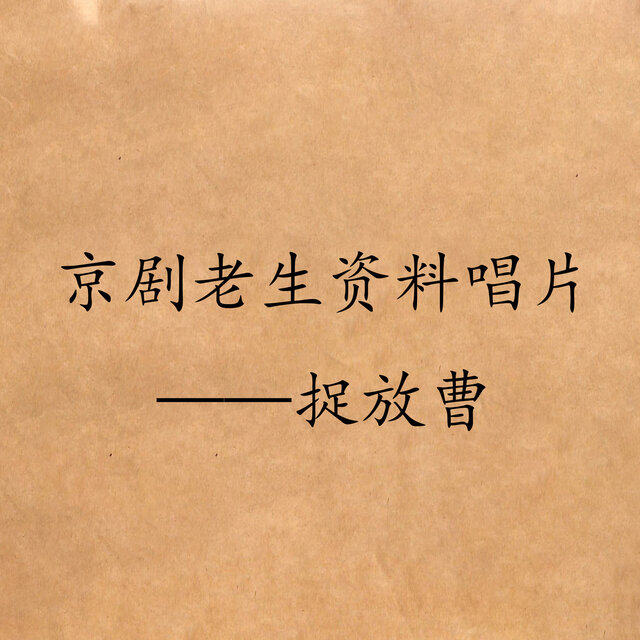 京剧老生资料唱片
——捉放曹